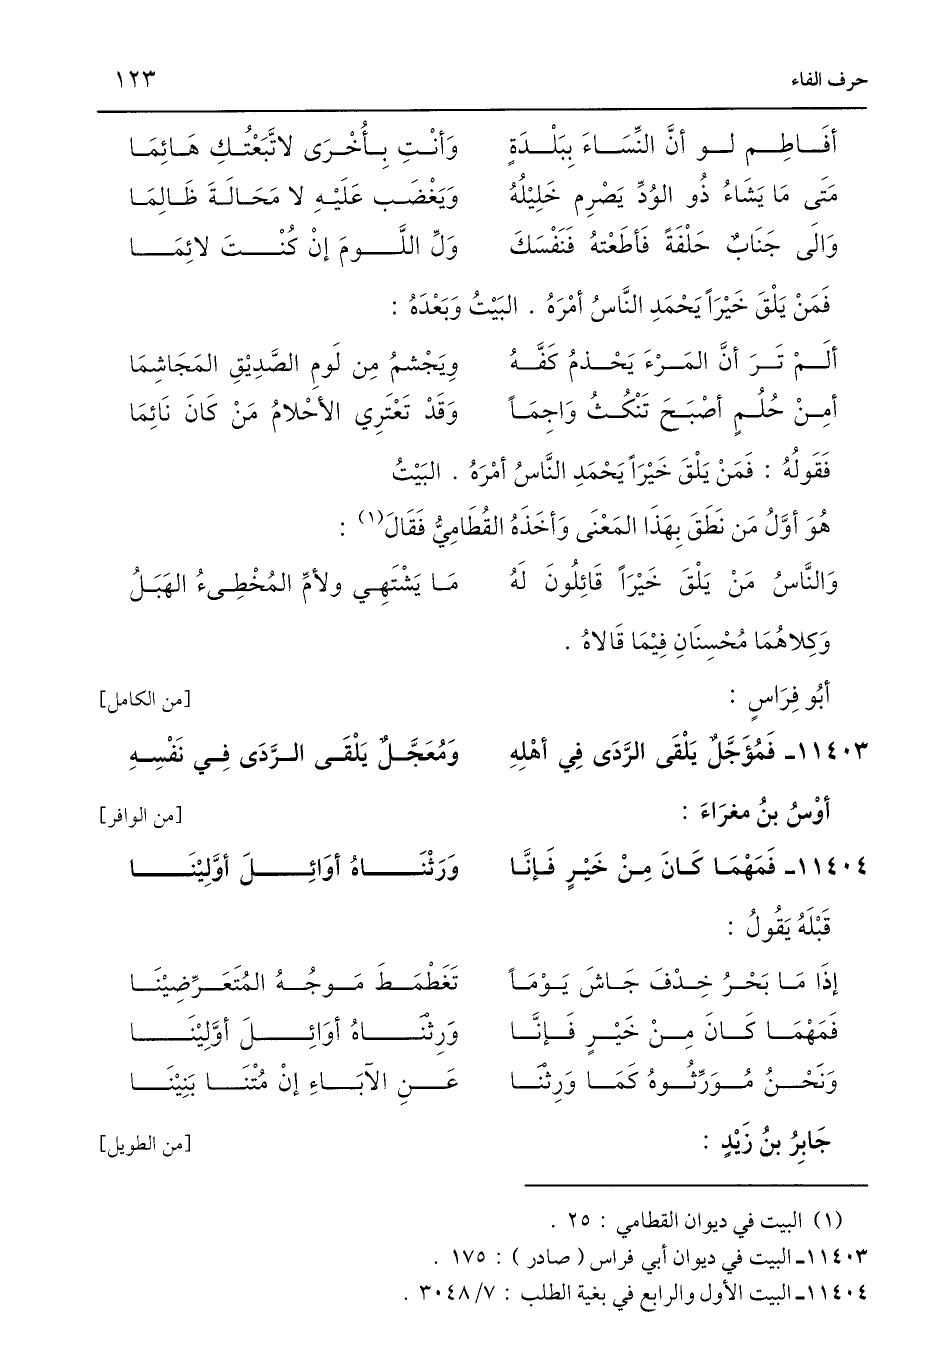 حرف الفاء ١٢٣
أَفَاطِم لو أنَّ النِّسَاءَ بِبَلْدَةٍ وَأنْتِ بِأُخْرَى لاتَّبَعْتُكِ هَائِمَا
مَتَى مَا يَشَاءُ ذُو الوُدِّ يَصْرِمِ خَلِيْلُهُ وَيَغْضَب عَلَيْهِ لا مَحَالَةَ ظَالِمَا
وَالَى جَنَابٌ حَلْفَةً فَأطَعْتهُ فَنَفْسَكَ وَلِّ اللَّومَ إنْ كُنْتَ لائِمَا
فَمَنْ يَلْقَ خَيْرَاً يَحْمَدِ النَّاسُ أمْرَهُ . البَيْتُ وَبَعْدَهُ :
ألَمْ تَرَ أنَّ المَرْءَ يَجْذمُ كَفَّهُ وِيَجْشمُ مِن لَومِ الصَّدِيْقِ المَجَاشِمَا
أمِنْ حُلُمٍ أصْبَحَ تَنْكُثُ وَاجِمَاً وَقَدْ تَعْتَرِي الأحْلامُ مَنْ كَانَ نَائِمَا
فَقَولُهُ : فَمَنْ يَلْقَ خَيْرَاً يَحْمَدِ النَّاسُ أمْرَهُ . البَيْتُ
هُوَ أوَّلُ مَن نَطَقَ بِهَذَا المَعْنَى وَأخَذَهُ القُطَامِيُّ فَقَالَ(١) :
وَالنَّاسُ مَنْ يَلْقَ خَيْرَاً قَائِلُونَ لَهُ مَا يَشْتَهِي ولأمِّ المُخْطِىءُ الهَبَلُ
وَكِلاهُمَا مُحْسِنَانِ فِيْمَا قَالاهُ .
أبُو فِرَاسٍ : [من الكامل]
١١٤٠٣ـ فَمُؤَجَّلٌ يَلْقَى الرَّدَى فِي أهْلِهِ وَمُعَجَّلٌ يَلْقَى الرَّدَى فِي نَفْسِهِ
أوْسُ بنُ مغرَاءَ : [من الوافر]
١١٤٠٤ـ فَمَهْمَا كَانَ مِنْ خَيْرٍ فَإنَّا وَرَثْنَاهُ أوَائِلَ أوَّلِيْنَا
قَبْلَهُ يَقُولُ :
إذَا مَا بَحْرُ خِذْفَ جَاشَ يَوْمَاً تَغَطْمَطَ مَوجُهُ المُتَعَرِّضِيْنَا
فَمَهْمَا كَانَ مِنْ خَيْرٍ فَإنَّا وَرِثْنَاهُ أوَائِلَ أوَّلِيْنَا
وَنَحْنُ مُوَرِّثُوهُ كَمَا وَرِثْنَا عَنِ الآبَاءِ إنْ مُتْنَا بَنِيْنَا
جَابِرُ بنُ زَيْدٍ : [من الطويل]
(١) البيت في ديوان القطامي : ٢٥ .
١١٤٠٣ـ البيت في ديوان أبي فراس ( صادر ) : ١٧٥ .
١١٤٠٤ـ البيت الأول والرابع في بغية الطلب : ٣٠٤٨/٧ .